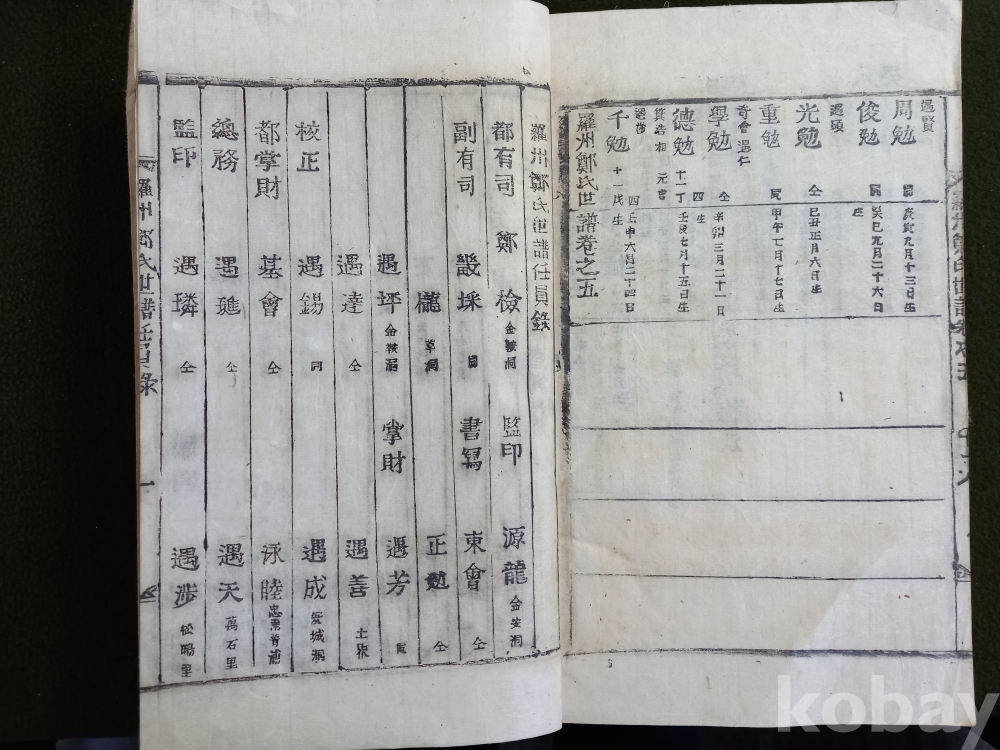 遇賢
周勉 庚寅九月十三日生
俊勉 癸巳九月二十六日生
遇碩
光勉 仝 己丑正月六日生
重勉 甲午七月十七日生
奇會 遇仁
學勉 仝 辛卯三月二十一日生
德勉 十一丁 壬辰七月十五日生
箕浩 相 元
千勉 十一戊生 壬申六月二十四日
羅州鄭氏世譜卷之五
羅州鄭氏世譜任員錄
都有司 鄭 檢 金鞍洞 監印 源龍 金安洞
副有司 畿採 書寫 東會 仝
草洞 正勉 仝
遇坪 金鞍洞 掌財 遇芳
遇達 仝 遇善
校正 遇錫 同 遇成
都掌財 基會 仝 泳睦
總務 遇 仝 遇天 萬石里
監印 遇璘 仝 遇涉 松
羅州鄭氏世譜任員錄 一
kobay